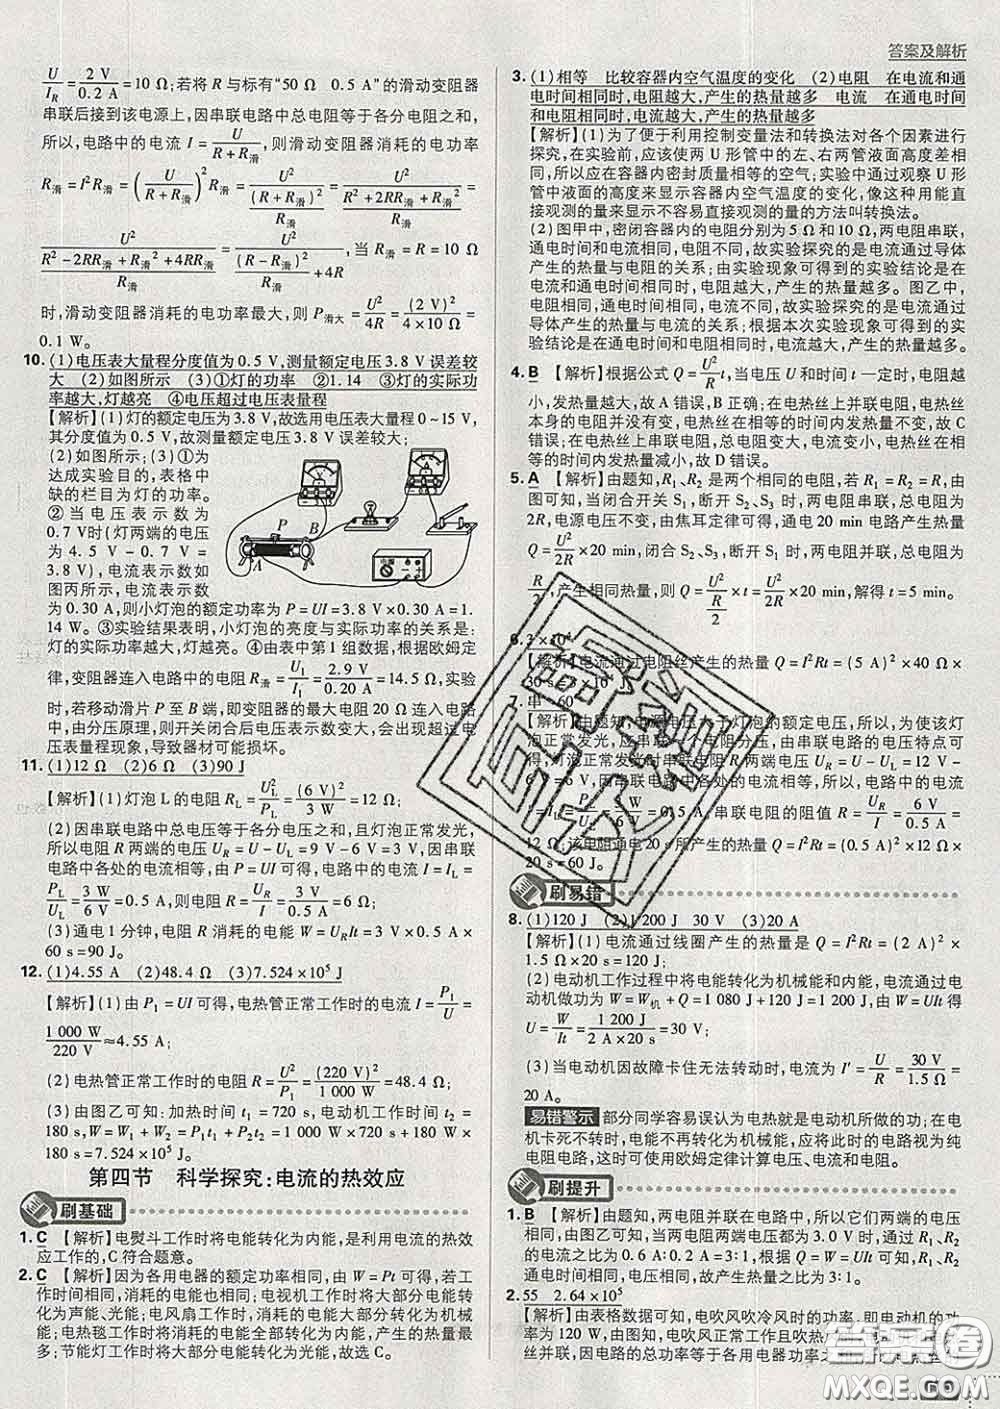 答案及解析
U/I_R = 2 V/0.2 A = 10 Ω；若将 R 与标有“50 Ω 0.5 A”的滑动变阻器
串联后接到该电源上，因串联电路中总电阻等于各分电阻之和，
所以，电路中的电流 I = U/(R+R滑)，则滑动变阻器消耗的电功率
R滑 = I²R滑 = (U/(R+R滑))²R滑 = U²/((R+R滑)²/R滑) = U²/((R²+2RR滑+R滑²)/R滑) =
U²/((R²-2RR滑+R滑²+4RR滑)/R滑) = U²/((R-R滑)²/R滑+4R)，当 R滑=R=10 Ω
时，滑动变阻器消耗的电功率最大，则 P滑大 = U²/4R = (2 V)²/(4×10 Ω) =
0.1 W。
10. (1)电压表大量程分度值为0.5 V，测量额定电压3.8 V误差较
大 (2)如图所示 (3)①灯的功率 ②1.14 ③灯的实际功
率越大，灯越亮 ④电压超过电压表量程
【解析】(1)灯的额定电压为3.8 V，故选用电压表大量程0~15 V，
其分度值为0.5 V，故测量额定电压3.8 V误差较大；
(2)如图所示；(3)①为
达成实验目的，表格中
缺的栏目为灯的功率。
②当电压表示数为
0.7 V时(灯两端的电压
为 4.5 V-0.7 V=
3.8 V)，电流表示数如
图丙所示，电流表示数
为0.30 A，则小灯泡的额定功率为 P=UI=3.8 V×0.30 A=1.
14 W。③实验结果表明，小灯泡的亮度与实际功率的关系是：
灯的实际功率越大，灯越亮。④由表中第1组数据，根据欧姆定
律，变阻器连入电路中的电阻 R滑 = U₁/I₁ = 2.9 V/0.20 A = 14.5 Ω，实验
时，若移动滑片 P 至 B 端，即变阻器的最大电阻20 Ω连入电路
中，由分压原理，则开关闭合后电压表示数变大，会出现超过电
压表量程现象，导致器材可能损坏。
P
B
A
11. (1)12 Ω (2)6 Ω (3)90 J
【解析】(1)灯泡 L 的电阻 R_L = U_L²/P_L = (6 V)²/3 W = 12 Ω；
(2)因串联电路中总电压等于各分电压之和，且灯泡正常发光，
所以电阻 R 两端的电压 U_R=U-U_L=9 V-6 V=3 V，因串联
电路中各处的电流相等，所以，电路中的电流 I=I_L=
P_L/U_L = 3 W/6 V = 0.5 A，则定值电阻 R = U_R/I = 3 V/0.5 A = 6 Ω；
(3)通电1分钟，电阻 R 消耗的电能 W=U_RIt=3 V×0.5 A×
60 s=90 J。
12. (1)4.55 A (2)48.4 Ω (3)7.524×10⁵ J
【解析】(1)由 P₁=UI 可得，电热管正常工作时的电流 I = P₁/U =
1 000 W/220 V ≈4.55 A；
(2)电热管正常工作时的电阻 R = U²/P₁ = (220 V)²/1 000 W = 48.4 Ω；
(3)由图乙可知，加热时间 t₁=720 s，电动机工作时间 t₂=
180 s，W=W₁+W₂=P₁t₁+P₂t₂=1 000 W×720 s+180 W×
180 s=7.524×10⁵ J。
第四节 科学探究：电流的热效应
刷基础
1. C 【解析】电熨斗工作时将电能转化为内能，是利用电流的热效
应工作的，C 符合题意。
2. C 【解析】因为各用电器的额定功率相同，由 W=Pt 可得，若工
作时间相同，消耗的电能也相同；电视机工作时将大部分电能转
化为声能、光能；电风扇工作时，消耗的电能大部分转化为机械
能；电热毯工作时将消耗的电能全部转化为内能，产生的热量最
多；节能灯工作时将大部分电能转化为光能，故选 C。
3. (1)相等 比较容器内空气温度的变化 (2)电阻 在电流和通
电时间相同时，电阻越大，产生的热量越多 电流 在通电时间
和电阻相同时，电流越大，产生的热量越多
【解析】(1)为了便于利用控制变量法和转换法对各个因素进行
探究，在实验前，应该使两 U 形管中的左、右两管液面高度差相
同，所以应在容器内密封质量相等的空气；实验中通过观察 U 形
管中液面的高度来显示容器内空气温度的变化，像这种用能直
接观测的量来显示不容易直接观测的量的方法叫转换法。
(2)图甲中，密闭容器内的电阻分别为5 Ω和10 Ω，两电阻串联，
通电时间和电流相同，电阻不同，故实验探究的是电流通过导体
产生的热量与电阻的关系；由实验现象可得到的实验结论是在
电流和通电时间相同时，电阻越大，产生的热量越多。图乙中，
电阻相同，通电时间相同，电流不同，故实验探究的是电流通过
导体产生的热量与电流的关系。根据本次实验现象可得到的实
验结论是在通电时间和电阻相同时，电流越大，产生的热量越多。
4. B 【解析】根据公式 Q = U²/R t，当电压 U 和时间 t 一定时，电阻越
小，发热量越大，故 A 错误，B 正确；在电热丝上并联电阻，电热丝
本身的电阻并没有变，电热丝在相等的时间内发热量不变，故 C
错误；在电热丝上串联电阻，总电阻变大，电流变小，电热丝在相
等的时间内发热量减小，故 D 错误。
5. A 【解析】由题知，R₁、R₂ 是两个相同的电阻，若 R₁=R₂=R，由
图可知，当闭合开关 S₁，断开 S₂、S₃ 时，两电阻串联，总电阻为
2R，电源电压不变，由焦耳定律可得，通电20 min电路产生热量
Q = U²/2R ×20 min，闭合 S₂、S₃，断开 S₁ 时，两电阻并联，总电阻为
R/2，产生相同热量，则 Q = U²/(R/2) × t = U²/2R ×20 min，解得 t=5 min。
6. 3×10⁴
【解析】电流通过电阻丝产生的热量 Q=I²Rt=(5 A)²×40 Ω×
30 s=3×10⁴ J。
7. 串 60
【解析】由题知，电源电压大于灯泡的额定电压，所以，为使该灯
泡正常发光，应串联一个电阻分压，由串联电路的电压特点可
得，灯泡正常发光时，串联电阻 R 两端电压 U_R=U-U_L=12 V-
6 V=6 V，因串联电路中各处的电流相等，所以，电路中的电流
I = P_L/U_L = 3 W/6 V = 0.5 A，串联电阻的阻值 R = U_R/I = 6 V/0.5 A =
12 Ω，该电阻通电20 s产生的热量 Q=I²Rt=(0.5 A)²×12 Ω
×20 s=60 J。
刷易错
8. (1)120 J (2)1 200 J 30 V (3)20 A
【解析】(1)电流通过线圈产生的热量是 Q=I²Rt=(2 A)²×
1.5 Ω×20 s=120 J；
(2)电动机工作过程中将电能转化为机械能和内能，电流通过电
动机做功为 W=W机+Q=1 080 J+120 J=1 200 J。由 W=UIt 得
U = W/It = 1 200 J/(2 A×20 s) = 30 V；
(3)当电动机因故障卡住无法转动时，电流 I′ = U/R = 30 V/1.5 Ω =
20 A。
易错警示 部分同学容易误认为电热就是电动机所做的功；在电
机卡死不转时，电能不再转化为机械能，应将此时的电路视为纯
电阻电路，这时可使用欧姆定律计算电压、电流和电阻。
刷提升
1. B 【解析】由题知，两电阻并联在电路中，所以它们两端的电压
相同，由图知，当两电阻两端电压都为3.0 V时，通过 R₁、R₂ 的电
流之比为0.6 A∶0.2 A=3∶1，根据 Q=W=UIt 可知，R₁、R₂ 的
通电时间相同，电压相同，故产生热量之比为3∶1。
2. 55 2.64×10⁵
【解析】由表格数据可知，电吹风吹冷风时的功率，即电动机的功
率为120 W，由题知，电吹风正常工作且吹热
丝并联，因电路的总功率等于各用电器功率之
答案圈
MXQE.COM